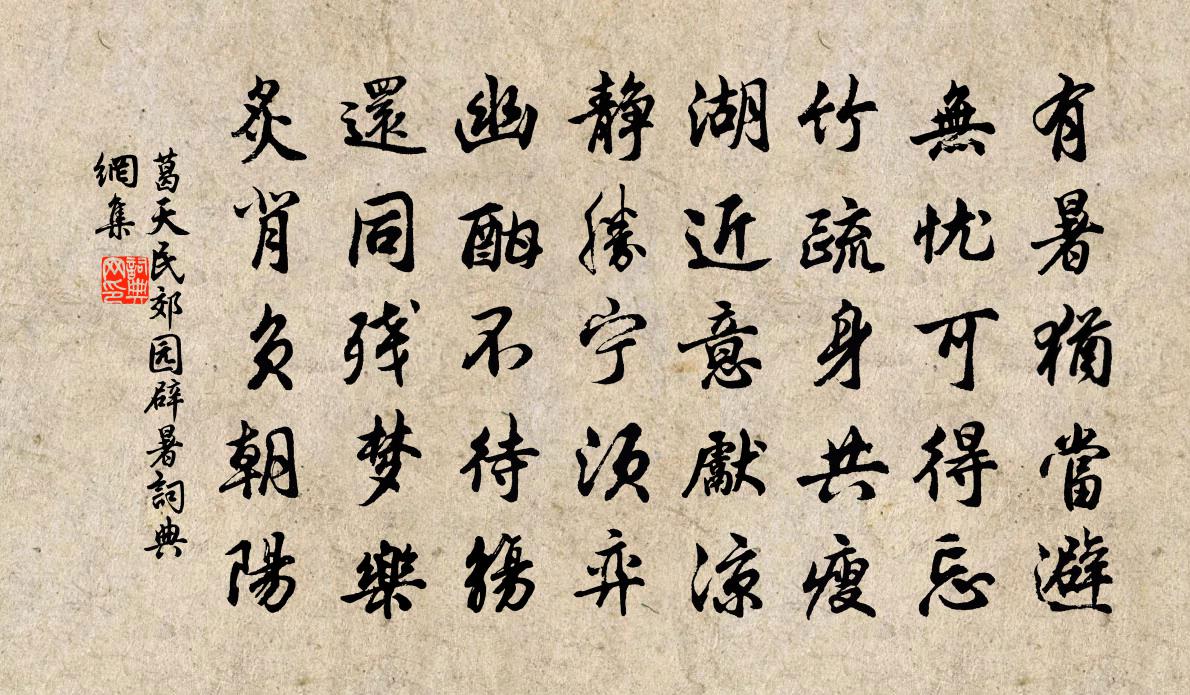 有暑猶當避
無忧可得忘
竹疏身共瘦
湖近意獻凉
静勝宁须弈
幽酣不待觞
還同残梦樂
炙背负朝陽
葛天民郊园辟暑詞典
網集
詞典网印